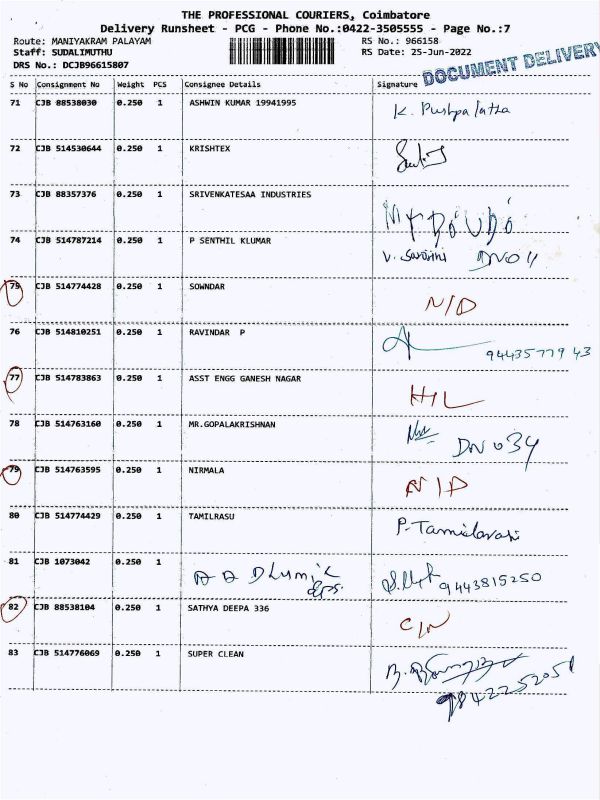 THE PROFESSIONAL COURIERS, Coimbatore
Delivery Runsheet - PCG - Phone No.:0422-3505555 - Page No.:7
Route: MANIYAKRAM PALAYAM RS No.: 966158
Staff: SUDALIMUTHU RS Date: 25-Jun-2022
DRS No.: DCJB96615807
DOCUMENT DELIVERY
S No Consignment No Weight PCS Consignee Details Signature
71 CJB 88538030 0.250 1 ASHWIN KUMAR 19941995 K. Pushpalatha
72 CJB 514530644 0.250 1 KRISHTEX
73 CJB 88357376 0.250 1 SRIVENKATESAA INDUSTRIES
74 CJB 514787214 0.250 1 P SENTHIL KLUMAR
75 CJB 514774428 0.250 1 SOWNDAR N/D
76 CJB 514810251 0.250 1 RAVINDAR P 9443577943
77 CJB 514783863 0.250 1 ASST ENGG GANESH NAGAR
78 CJB 514763160 0.250 1 MR.GOPALAKRISHNAN DN 034
79 CJB 514763595 0.250 1 NIRMALA N/D
80 CJB 514774429 0.250 1 TAMILRASU
81 CJB 1073042 0.250 1 9443815250
82 CJB 88538104 0.250 1 SATHYA DEEPA 336 C/N
83 CJB 514776069 0.250 1 SUPER CLEAN